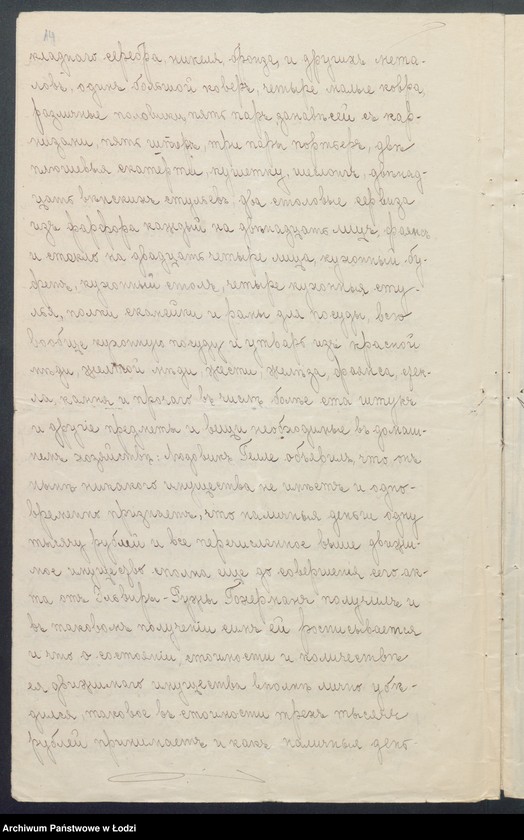 14
кладнаго серебра, никеля, бронза, и другихъ мета-
ловъ, одинъ большой коверъ, четыре малые ковра,
различные половики, пять паръ занавѣсей съ кар-
низами, пять шторъ, три пары портьеръ, двѣ
плюшевыя скатерти, кушетку, шезлонгъ, двѣнад-
цать вѣнскихъ стульевъ, два столовые сервиза
изъ фарфора каждый на двѣнадцать лицъ, фаянсъ
и стекло на двадцать четыре лица, кухонный бу-
фетъ, кухонный столъ, четыре кухонныя сту-
лья, полки скамейки и рамы для посуды, всю
вообще кухонную посуду и утварь изъ красной
мѣди, желтой мѣди, жести, желѣза, фаянса, стек-
ла, камня и прочаго въ числѣ болѣе ста штукъ
и другіе предметы и вещи необходимые въ домаш-
немъ хозяйствѣ: Людовикъ объявилъ, что онъ
нынѣ никакого имущества не имѣетъ и одно-
временно признаетъ, что наличныя деньги одну
тысячу рублей и все перечисленное выше движи-
мое имущество сполна еще до совершенія сего ак-
та отъ Эльвиры-Ружи получилъ и
въ таковомъ полученіи симъ ей росписывается
и что о состояніи, стоимости и количествѣ
ея движимаго имущества вполнѣ лично убѣ-
дился, таковое въ стоимости трехъ тысячъ
рублей принимаетъ и какъ наличныя день-
Archiwum Państwowe w Łodzi